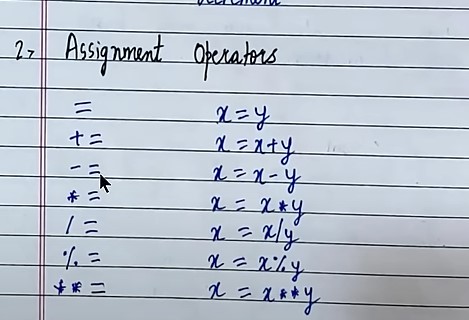 2> Assignment Operators
= x = y
+= x = x+y
-= x = x-y
*= x = x*y
/= x = x/y
%= x = x%y
**= x = x**y